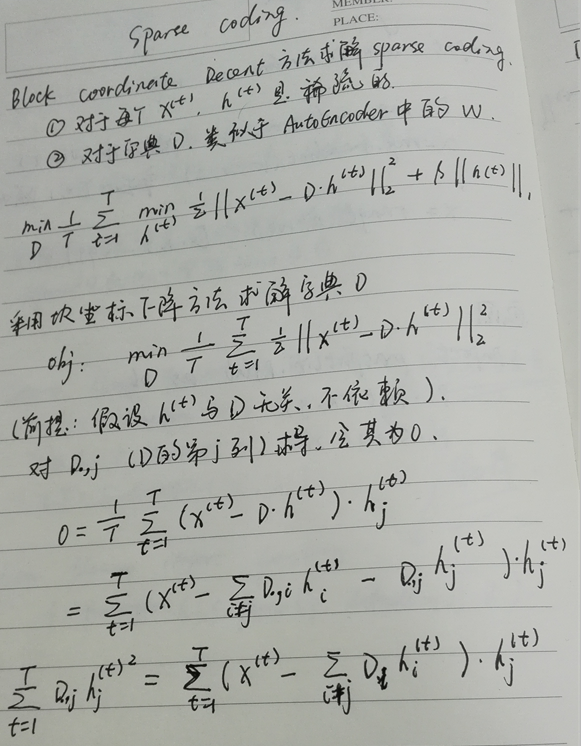 MEMBER:
PLACE:
Sparse coding.
Block coordinate Decent 方法求解 sparse coding.
① 对于每个 x^(t), h^(t) 是稀疏的.
② 对于字典 D. 类似于 AutoEncoder 中的 W.
min_D 1/T Σ_{t=1}^T min_{h^(t)} 1/2 ||x^(t) - D·h^(t)||_2^2 + λ ||h(t)||_1
采用块坐标下降方法求解字典 D
obj: min_D 1/T Σ_{t=1}^T 1/2 ||x^(t) - D·h^(t)||_2^2
(前提: 假设 h^(t) 与 D 无关, 不依赖).
对 D_{·,j} (D的第j列) 求导, 令其为0.
0 = 1/T Σ_{t=1}^T (x^(t) - D·h^(t))·h_j^(t)
= Σ_{t=1}^T (x^(t) - Σ_{i≠j} D_{·,i} h_i^(t) - D_{·,j} h_j^(t))·h_j^(t)
Σ_{t=1}^T D_{·,j} h_j^(t)2 = Σ_{t=1}^T (x^(t) - Σ_{i≠j} D_{·,i} h_i^(t))·h_j^(t)